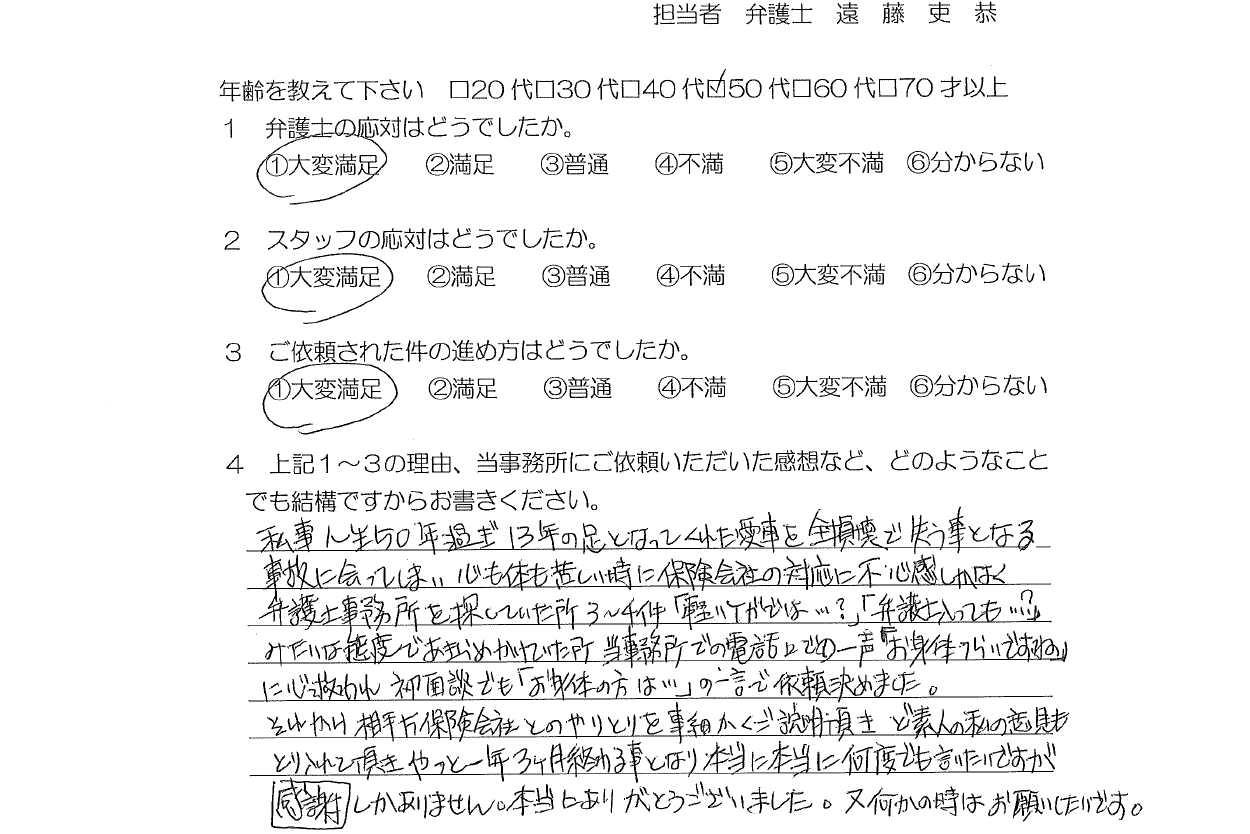 担当者　弁護士　遠　藤　吏　恭
年齢を教えて下さい　□20代□30代□40代☑50代□60代□70才以上
１　弁護士の応対はどうでしたか。
①大変満足　②満足　③普通　④不満　⑤大変不満　⑥分からない
２　スタッフの応対はどうでしたか。
①大変満足　②満足　③普通　④不満　⑤大変不満　⑥分からない
３　ご依頼された件の進め方はどうでしたか。
①大変満足　②満足　③普通　④不満　⑤大変不満　⑥分からない
４　上記１～３の理由、当事務所にご依頼いただいた感想など、どのようなこと
でも結構ですからお書きください。
私事人生50年過ぎ13年の足となってくれた愛車を全損壊で失う事となる
事故に会ってしまい心も体も苦しい時に保険会社の対応に不心感しかなく
弁護士事務所を探していた所3～4件「軽いケガでは…？」「弁護士入っても…？」
みたいな態度であきらめかけていた所当事務所での電話口での一声「お身体つらいですね」
に心救われ初面談でも「お身体の方は…」の一言で依頼決めました。
それから相手方保険会社とのやりとりを事細かくご説明頂きど素人の私の意見も
とり入れて頂きやっと一年3ヶ月終わる事となり本当に本当に何度でも言いたいですが
感謝しかありません。本当にありがとうございました。又何かの時はお願いしたいです。